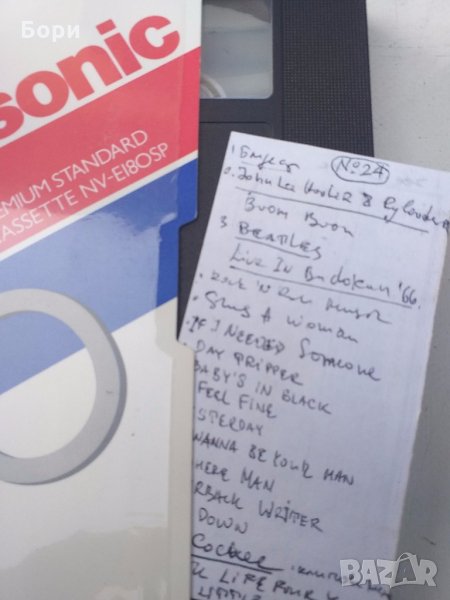 Бори
sonic
EMIUM STANDARD
CASSETTE NV-E180SP
№24
John Lee Hooker & Ry Cooder
Boom Boom
3 BEATLES
Live In Budokan '66.
Rock 'N Roll Music
She's A Woman
IF I NEEDED Someone
DAY TRIPPER
BABY'S IN BLACK
FEEL FINE
STERDAY
WANNA BE YOUR MAN
HERE MAN
RBACK WRITER
DOWN
Cocker
LIFE FOUR
LITTLE
bazar